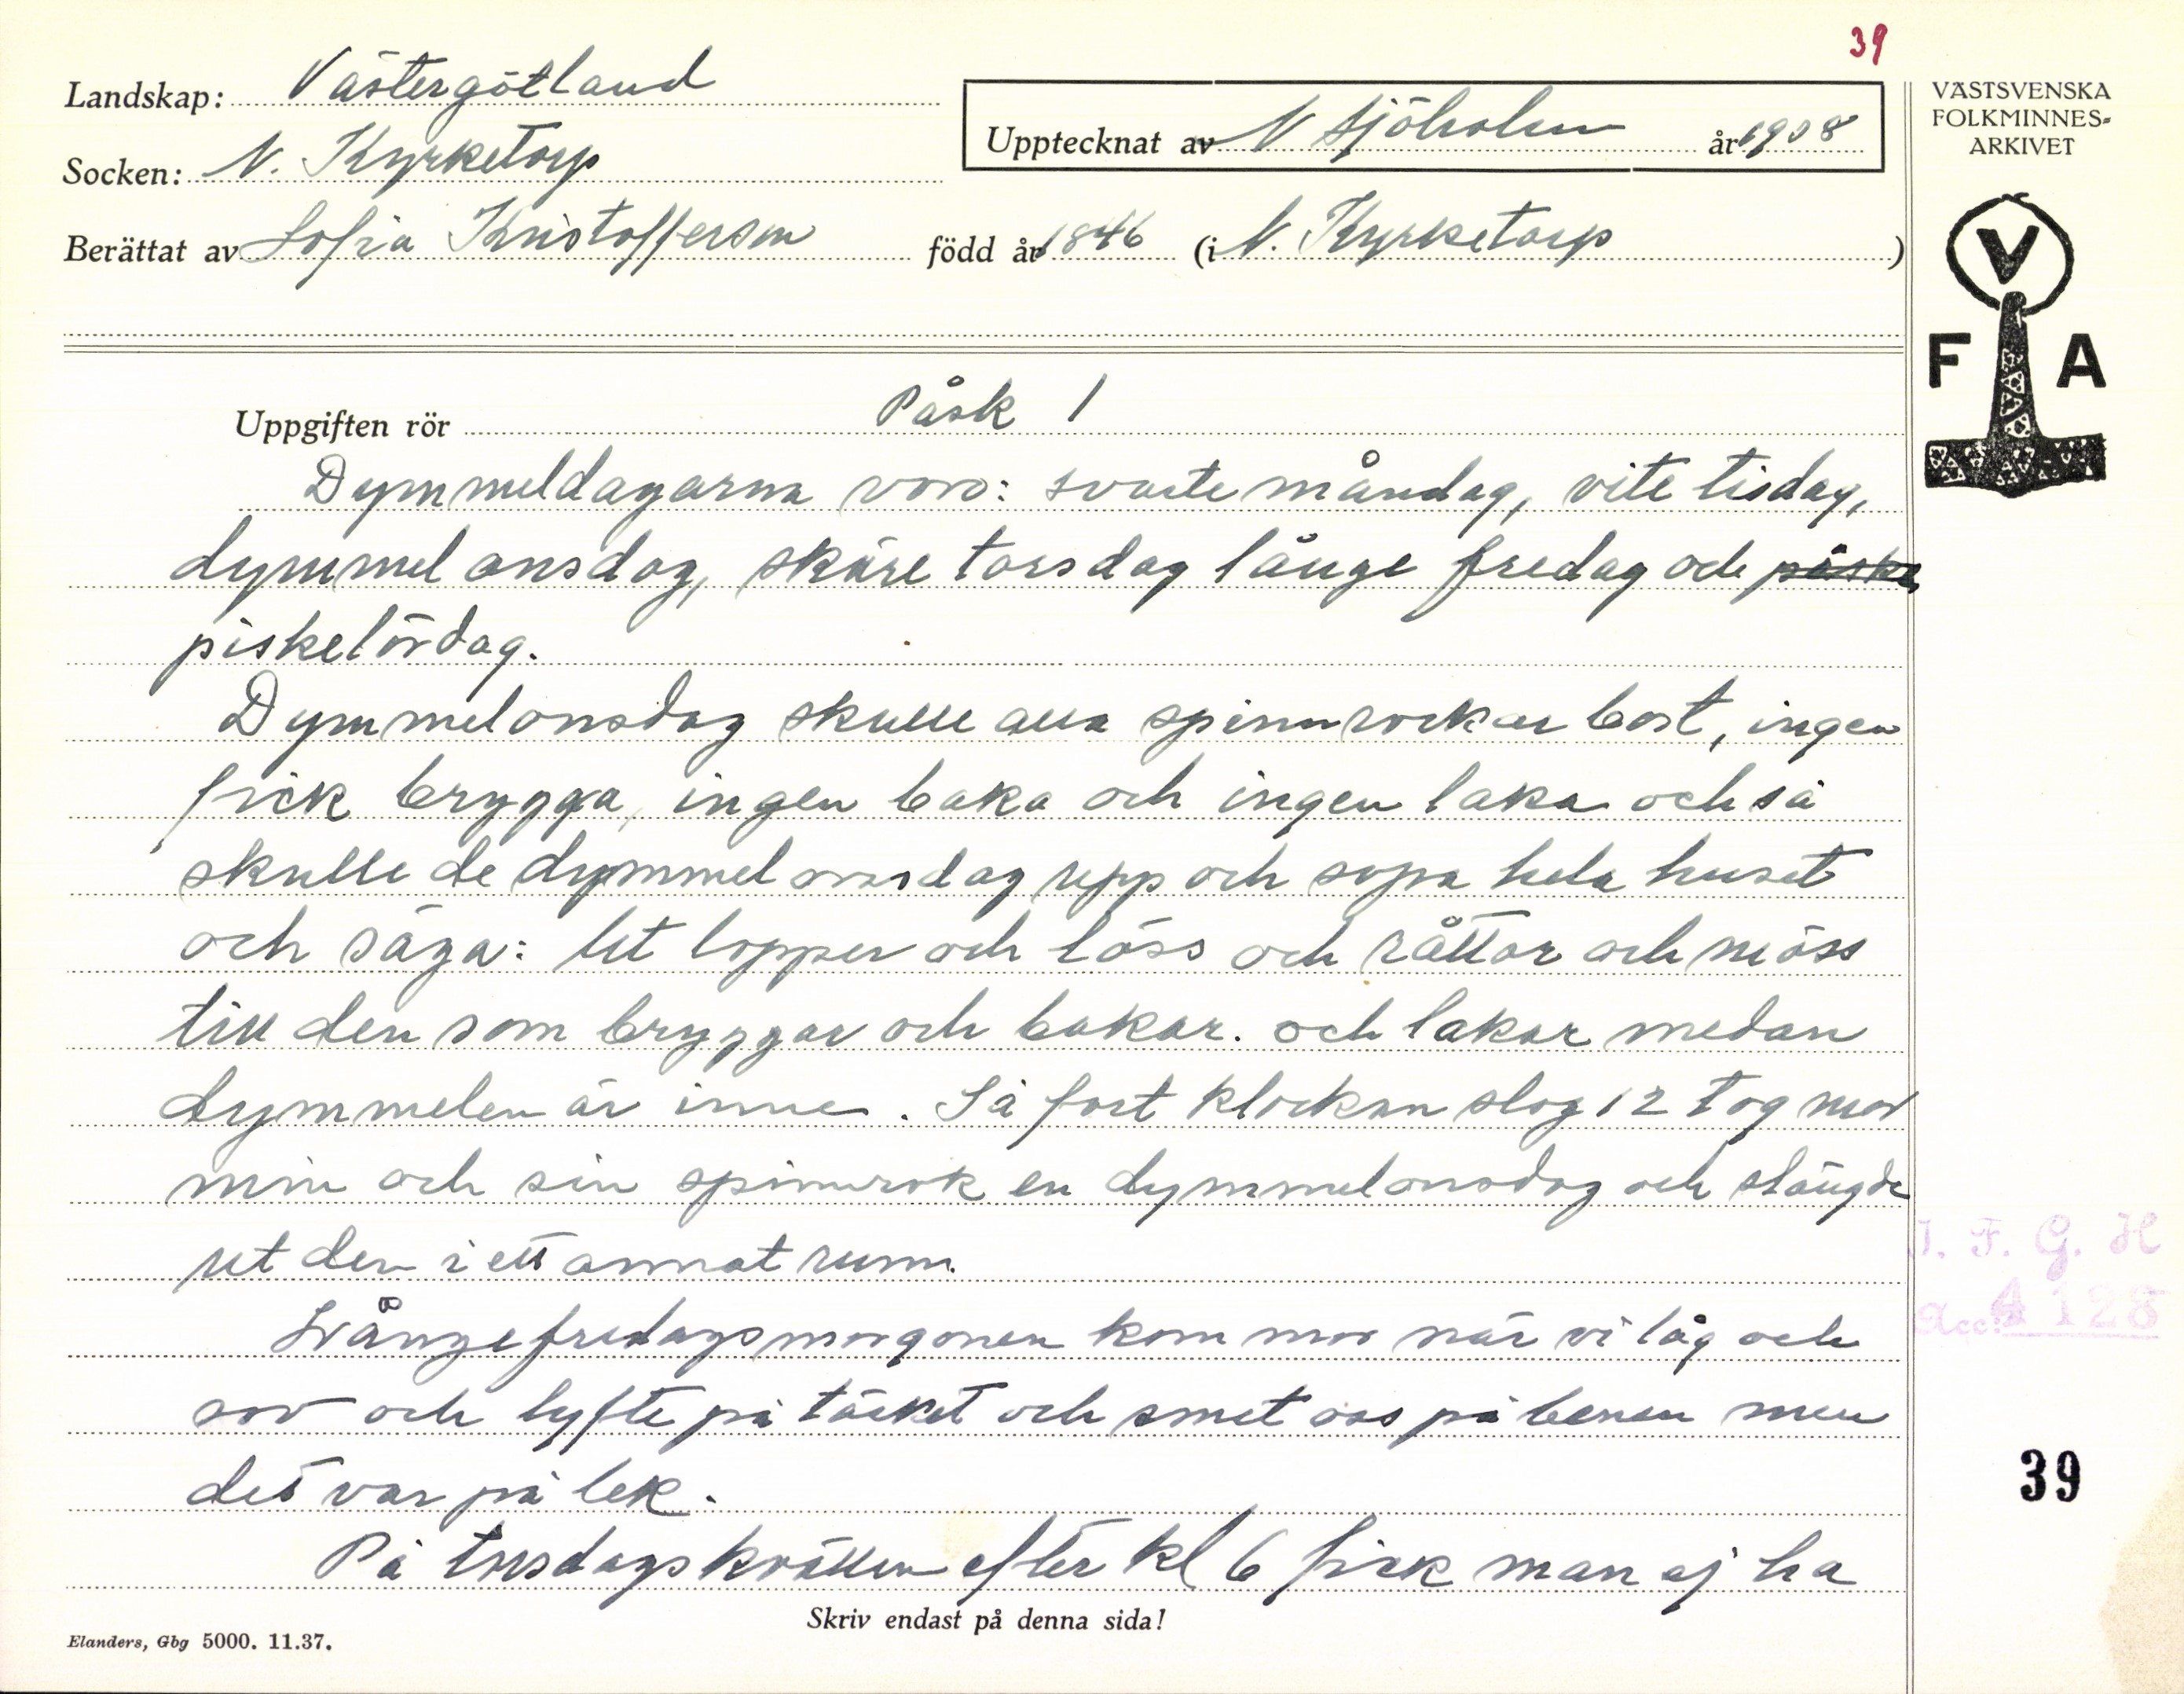 39
Landskap: Västergötland
Upptecknat av N Sjöholm år 1938
VÄSTSVENSKA
FOLKMINNES-
ARKIVET
Socken: N. Kyrketorp
Berättat av Sofia Kristofferson född år 1846 (i N. Kyrketorp)
V
F A
Uppgiften rör Påsk 1
Dymmeldagarna voro: svarte måndag, vite tisdag,
dymmel onsdag, skäre torsdag långe fredag och påske
piskelördag.
Dymmelonsdag skulle alla spinnrockar bort, ingen
fick brygga, ingen baka och ingen laka och så
skulle de dymmel onsdag upp och sopa hela huset
och säga: Ut loppor och löss och råttor och möss
till den som bryggar och bakar. och lakar medan
dymmelen är inne. Så fort klockan slog 12 tog mor
min och sin spinnrok en dymmelonsdag och slängde
ut den i ett annat rum.
Långefredagsmorgonen kom mor när vi låg och
sov och lyfte på täcket och smet oss på benen men
det var på lek.
På torsdagskvällen efter kl 6 fick man ej ha
Skriv endast på denna sida!
Elanders, Gbg 5000. 11.37.
I. F. G. H
Acc: 4128
39